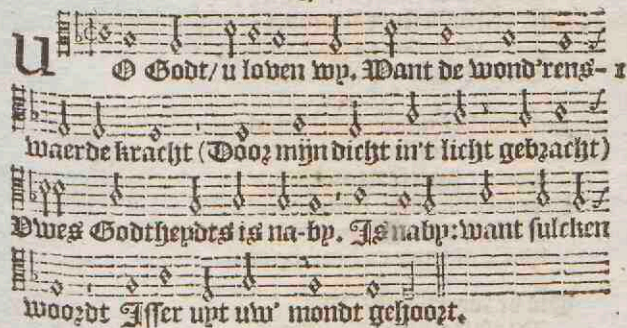 U O Godt/ u loven wy. Want de wond'rens- 1
waerde kracht (Door mijn dicht in't licht gebracht)
Vwes Godtheydts is na-by. Is naby: want sulcken
woordt Isser uyt uw' mondt gehoort.